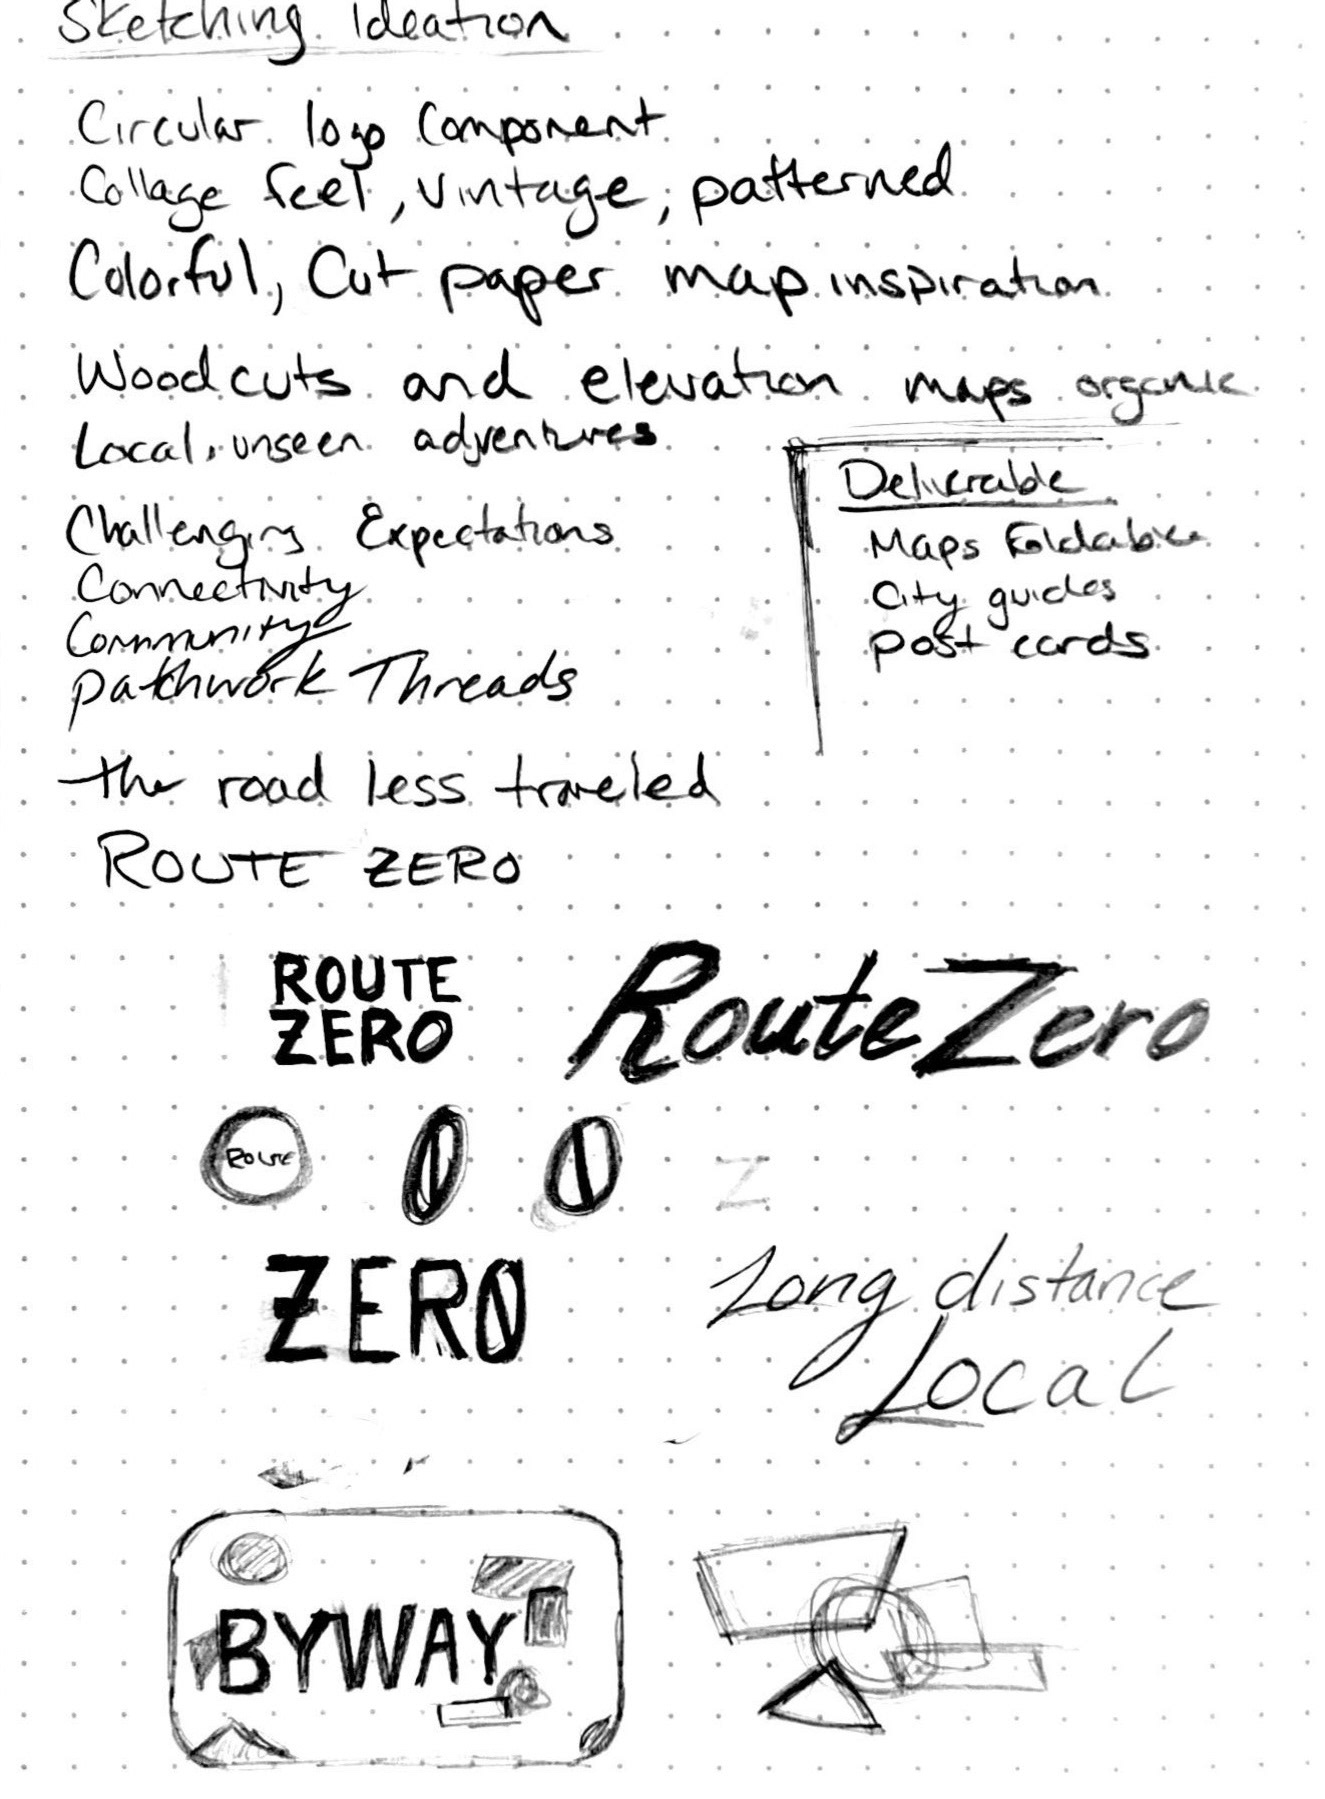 Sketching Ideation
Circular logo Component
Collage feel, vintage, patterned
Colorful, Cut paper map inspiration
Woodcuts and elevation maps organic
Local, unseen adventures
Challenging Expectations
Connectivity
Community
patchwork Threads
Deliverable
Maps Foldable
City guides
post cards
the road less traveled
ROUTE ZERO
ROUTE
ZERO
Route Zero
ROUTE
0 0
Z
ZERO
Long distance
Local
BYWAY